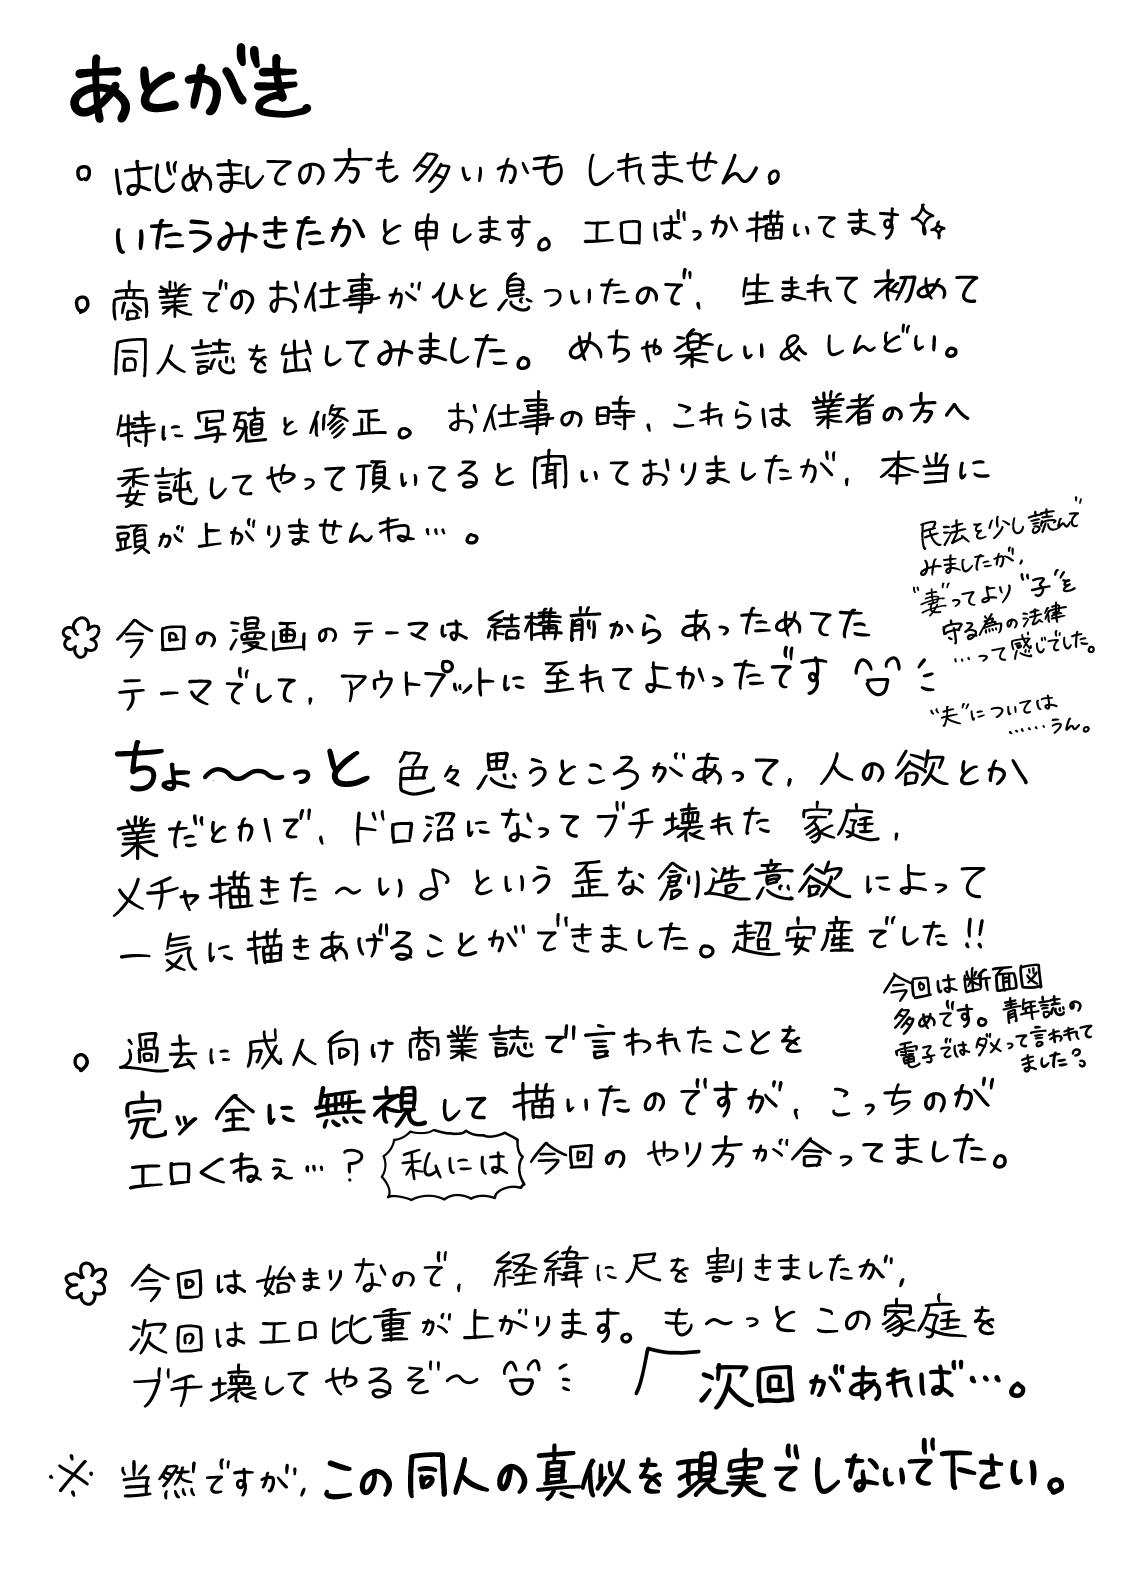 あとがき
○ はじめましての方も多いかもしれません。
いたうみきたかと申します。エロばっか描いてます✧
○ 商業でのお仕事がひと息ついたので、生まれて初めて
同人誌を出してみました。めちゃ楽しい&しんどい。
特に写殖と修正。お仕事の時、これらは業者の方へ
委託してやって頂いてると聞いておりましたが、本当に
頭が上がりませんね…。
民法を少し読んで
みましたが、
"妻"ってより"子"を
守る為の法律
…って感じでした。
"夫"については
……うん。
今回の漫画のテーマは結構前からあっためてた
テーマでして、アウトプットに至れてよかったです
ちょ〜〜っと色々思うところがあって、人の欲とか
業だとかで、ドロ沼になってブチ壊れた家庭、
メチャ描きた〜い♪という歪な創造意欲によって
一気に描きあげることができました。超安産でした!!
今回は断面図
多めです。青年誌の
電子ではダメって言われて
ました。
○ 過去に成人向け商業誌で言われたことを
完ッ全に無視して描いたのですが、こっちのが
エロくねぇ…?私には今回のやり方が合ってました。
今回は始まりなので、経緯に尺を割きましたが、
次回はエロ比重が上がります。も〜っとこの家庭を
ブチ壊してやるぞ〜
次回があれば…。
※ 当然ですが、この同人の真似を現実でしないで下さい。